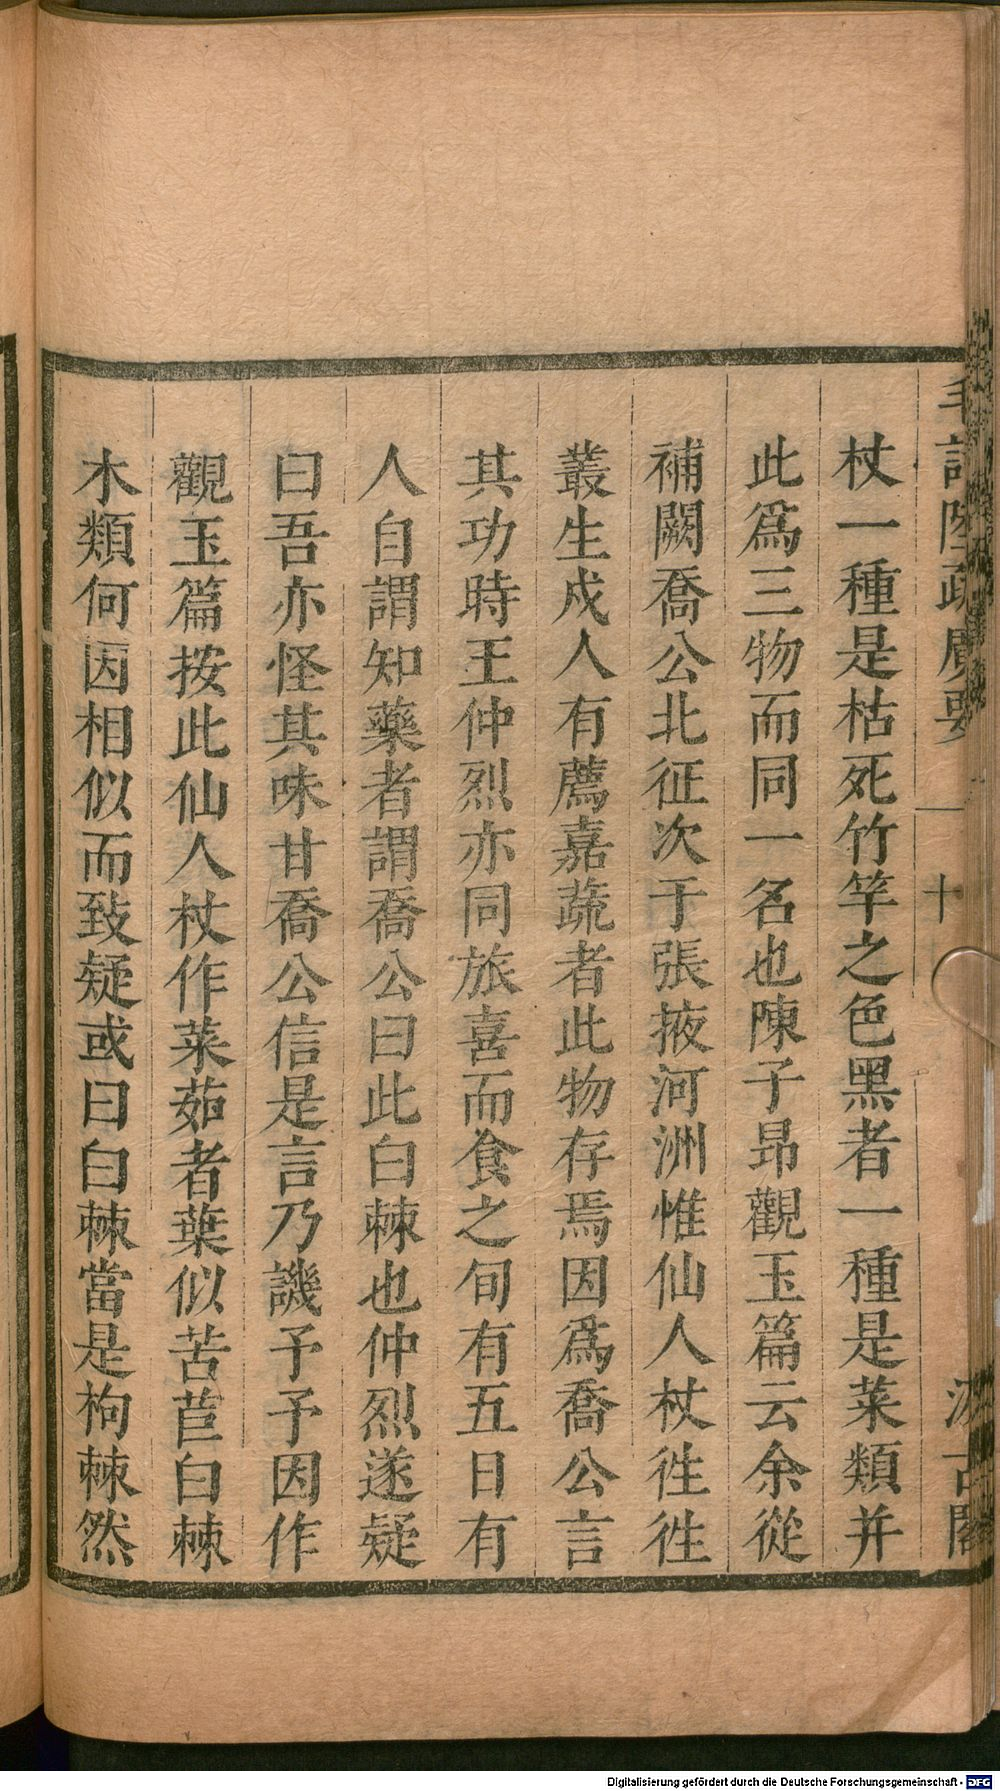 毛詩陸疏廣要 一 十 汲古閣
杖一種是枯死竹竿之色黑者一種是菜類并
此爲三物而同一名也陳子昂觀玉篇云余從
補闕喬公北征次于張掖河洲惟仙人杖徃徃
叢生戍人有薦嘉蔬者此物存焉因爲喬公言
其功時王仲烈亦同旅喜而食之旬有五日有
人自謂知藥者謂喬公曰此白棘也仲烈遂疑
曰吾亦怪其味甘喬公信是言乃譏予予因作
觀玉篇按此仙人杖作菜茹者葉似苦苣白棘
木類何因相似而致疑或曰白棘當是枸棘然
Digitalisierung gefördert durch die Deutsche Forschungsgemeinschaft - DFG